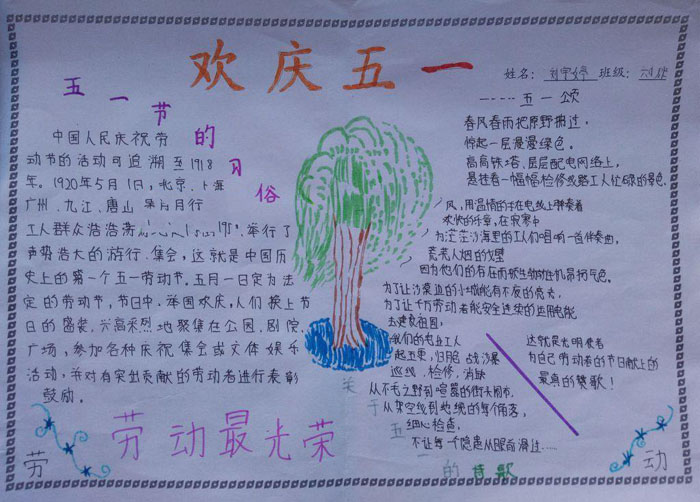 欢庆五一
姓名: 班级:
五一节的习俗
中国人民庆祝劳
动节的活动可追溯至1918
年。1920年5月1日,北京、上海
广州、九江、唐山
工人群众浩浩
举行了
声势浩大的游行、集会,这就是中国历
史上的第一个五一劳动节。五月一日定为法
定的劳动节,节日中,举国欢庆,人们换上节
日的盛装,兴高采烈地聚集在公园、剧院、
广场,参加各种庆祝集会或文体娱乐
活动,并对有突出贡献的劳动者进行表彰
鼓励。
劳动最光荣
----五一颂
春风春雨把原野拂过,
惊起一层漫漫绿色。
高高铁塔、层层配电网络上,
是挂着一幅幅检修线路工人忙碌的景色。
风,用温情的手在电线上弹奏着
欢快的乐章,在寂寞中
为茫茫沙海里的工人们唱响一首伴奏曲,
荒芜人烟的戈壁
因为他们的存在而顿生勃勃生机昂扬气色。
为了让沙漠边的小城能有不夜的亮光,
为了让千万劳动者能安全连续的运用电能
去建设祖国,
我们的电业工人
起五更,归酷战沙漠
巡线、检修、消缺
从不毛之野到喧嚣的街头闹市,
从架空线到地缆的每个角落,
细心检查,
不让每一个隐患从眼前滑过……
这就是光明使者
为自己劳动者的节日献上的
最真的赞歌!
关于五一的诗歌
劳动